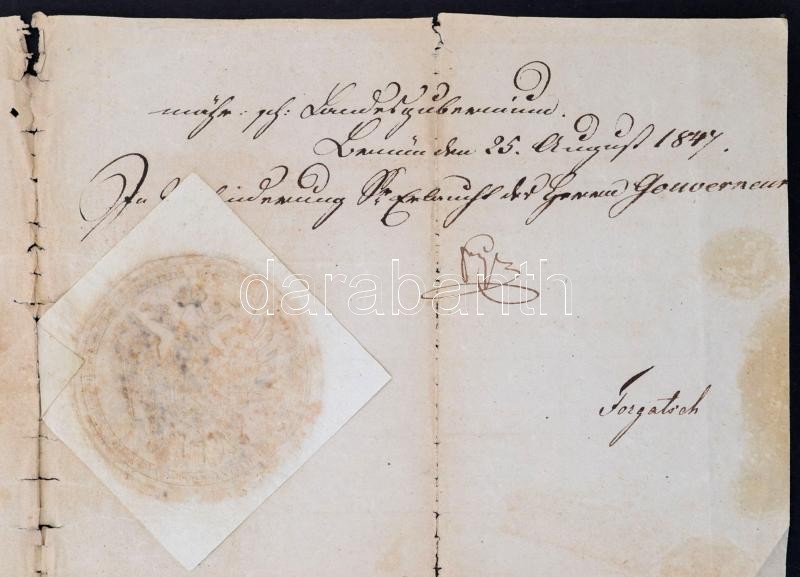 mähr: sch: Landesgubernium.
Brünn den 25. August 1847.
In Verhinderung Sr Erlaucht des Herrn Gouverneur
darabanth
Forgatsch